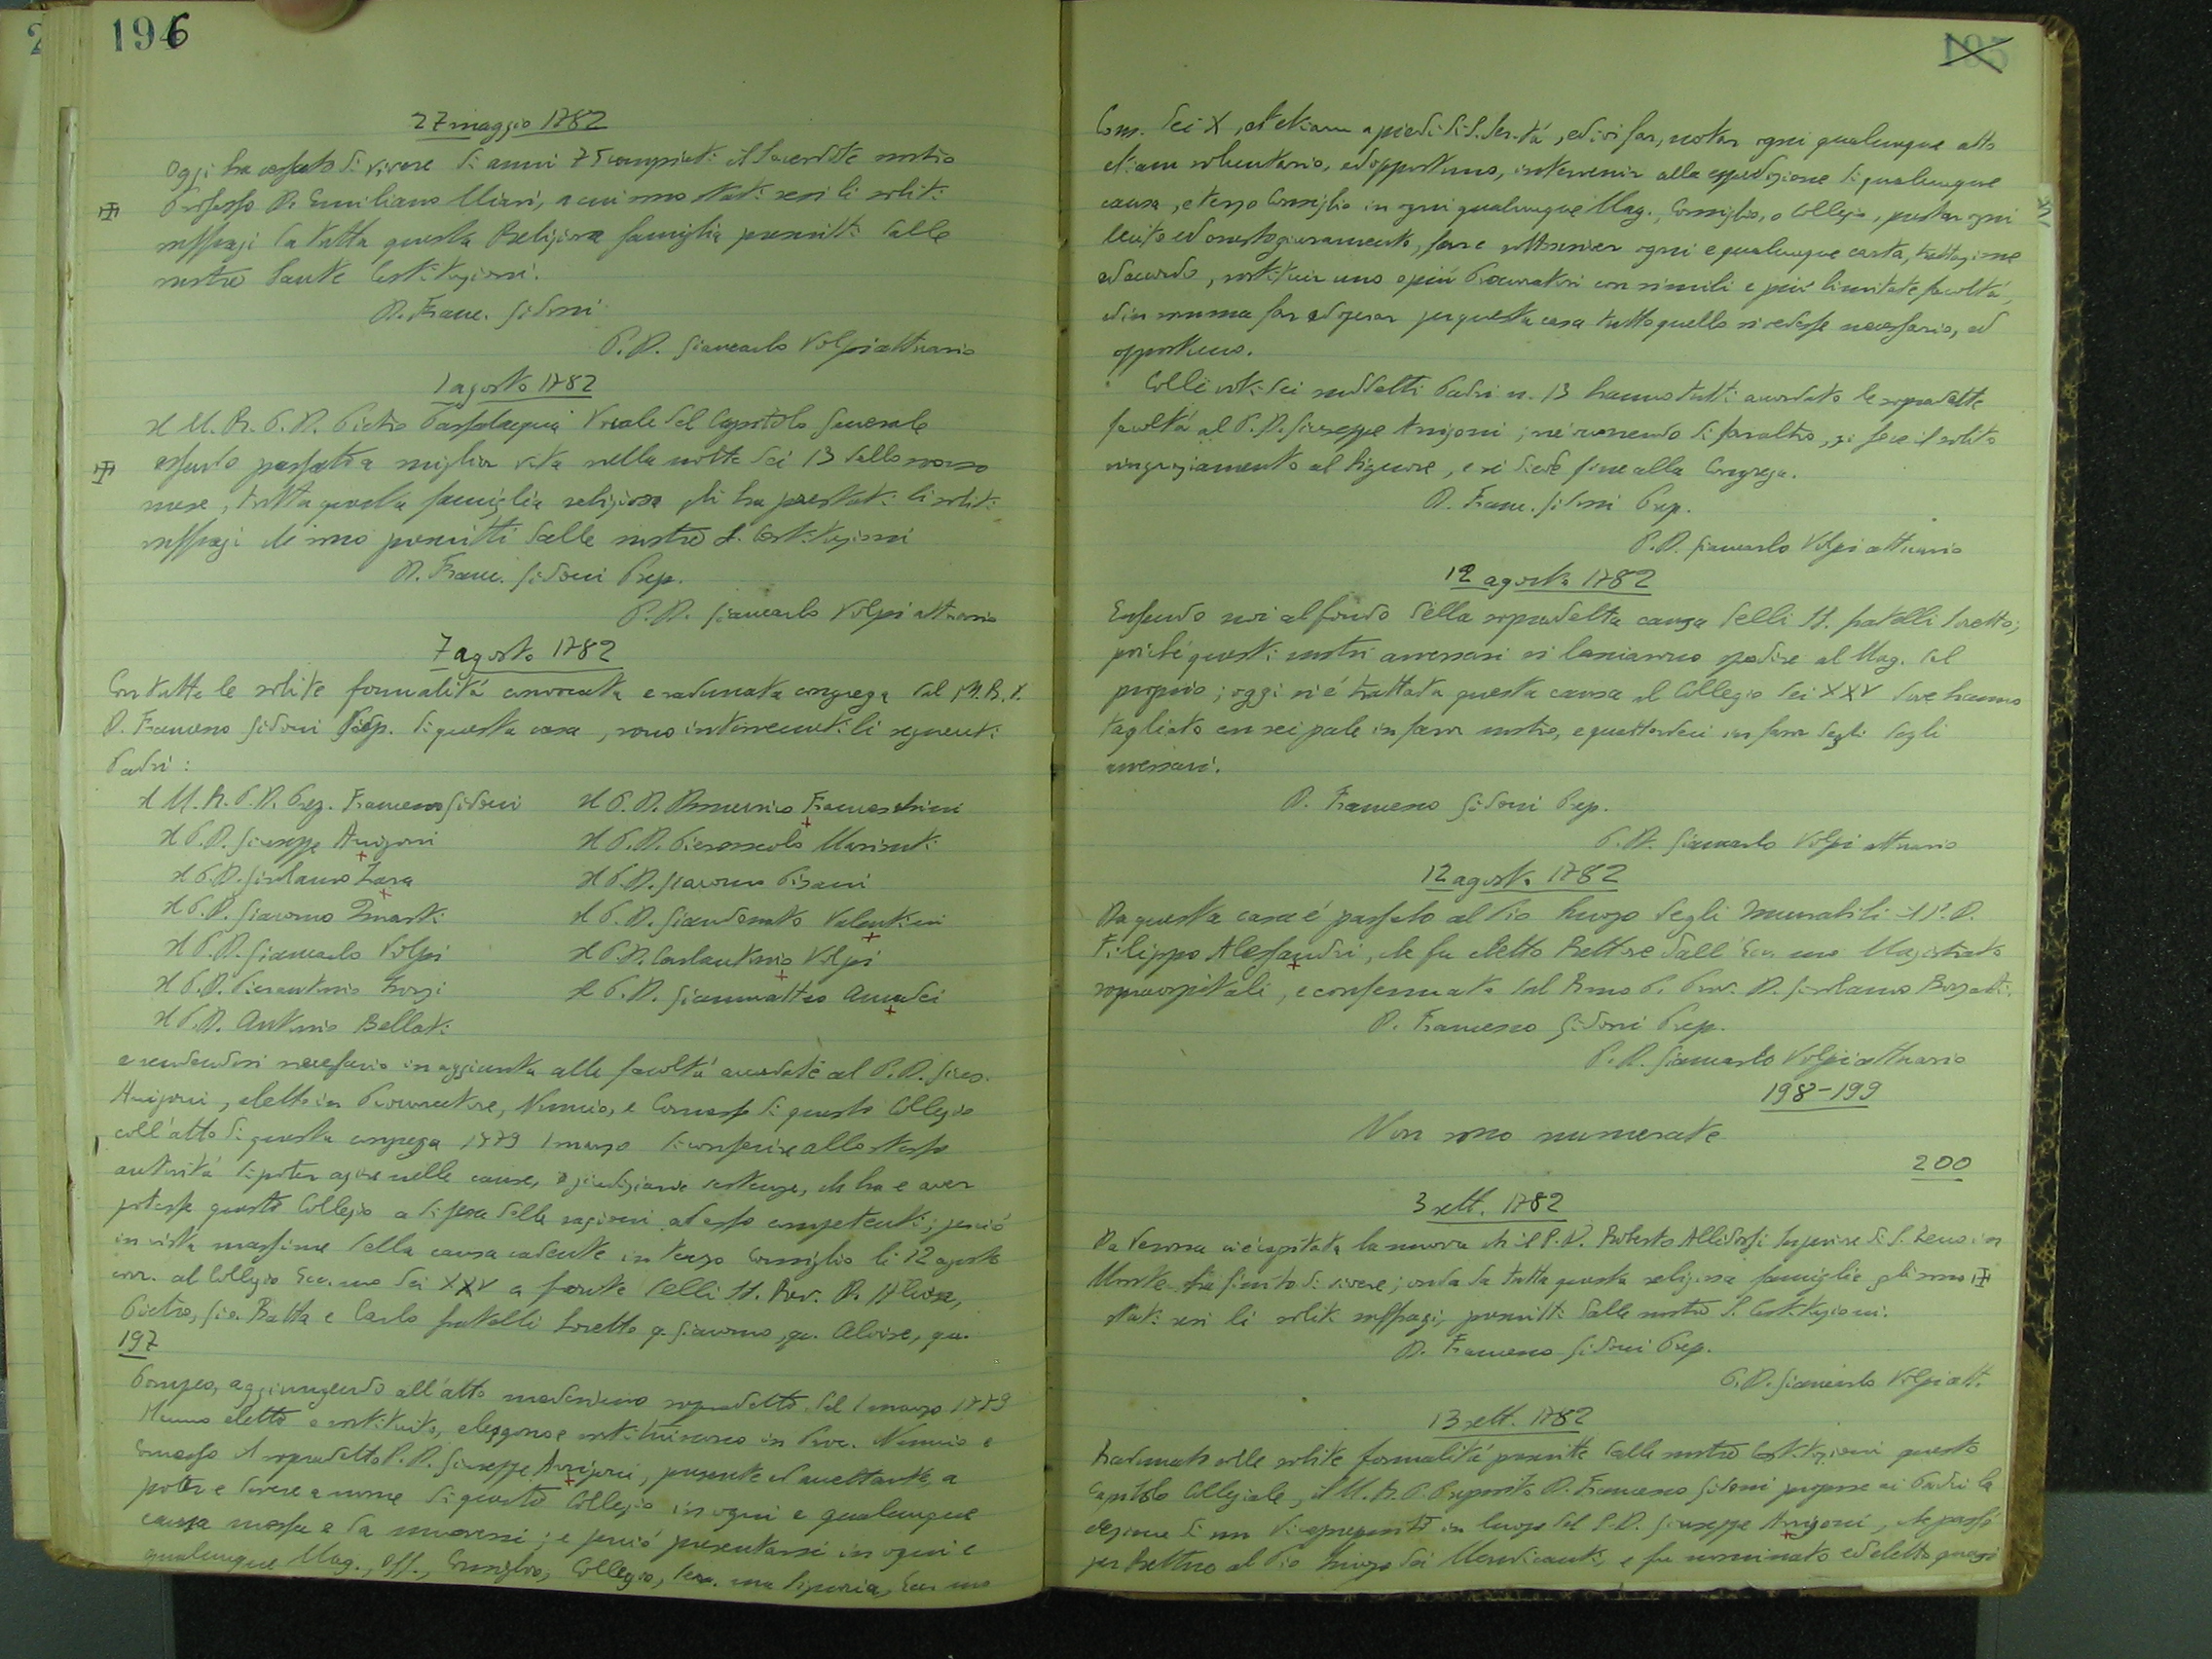 196
27 maggio 1782
Oggi ha cessato di vivere di anni 75 compiuti il Sacerdote nostro
Professo D. Emiliano Miari, a cui sono stati resi li soliti
suffragi da tutta questa Religiosa famiglia prescritti dalle
nostre Sante Costituzioni.
D. Franc. Gidoni
P. D. Giancarlo Volpi attuario
1 agosto 1782
Il M. R. P. D. Pietro Passalacqua Vocale del Capitolo Generale
essendo passato a miglior vita nella notte dei 13 dello scorso
mese, tutta questa famiglia religiosa gli ha prestati li soliti
suffragi che sono prescritti dalle nostre S. Costituzioni
D. Franc. Gidoni Prep.
P. D. Giancarlo Volpi attuario
7 agosto 1782
Con tutte le solite formalitá convocata e radunata congrega dal M. R. P.
D. Francesco Gidoni Prep. di questa casa, sono intervenuti li seguenti
Padri:
Il M. R. P. D. Prep. Francesco Gidoni Il P. D. Franceschini
Il P. D. Giuseppe Arrigoni Il P. D. Marinuti
Il P. D. Girolamo Zara Il P. D. Giacomo Pisani
Il P. D. Giacomo Il P. D. Giandonato Valentini
Il P. D. Giancarlo Volpi Il P. D. Carlantonio Volpi
Il P. D. Pierantonio Il P. D. Gianmatteo Amadei
Il P. D. Antonio Bellati
e rendendosi necessario in aggiunta alle facoltá accordate al P. D. Gius.
Arrigoni, eletto in Procuratore, Nunzio, e Comesso di questo Collegio
coll'atto di questa congrega 1779 1 marzo di conferire allo stesso
autoritá di poter agire nelle cause, e giudiziarie sentenze, che ha e aver
potesse questo Collegio a difesa delle ragioni ad esso competenti; perció
in vista massime della causa cadente in terzo Consiglio li 12 agosto
corr. al Collegio Ecc.mo dei XXV a fronte delli SS. Rev. D. Alvise,
Pietro, Gio. Batta e Carlo fratelli Soretto q. Giacomo, qu. Alvise, qu.
197
Pompeo, aggiungendo all'atto medesimo sopradetto del 1 marzo 1779
Hanno eletto e costituito, eleggono e costituiscono in Proc. Nunzio e
Comesso il sopradetto P. D. Giuseppe Arrigoni, presente ed accettante, a
poter e dovere a nome di questo Collegio in ogni e qualunque
causa mossa e da muoversi; e perció presentarsi in ogni e
qualunque Mag., Off., Consiglio, Collegio, Ser.ma Signoria, Ecc.mo
195
Cons. dei X, et etiam a piedi di S. Ser.tá, ed ivi far, notar ogni qualunque atto
etiam volontario, ed opportuno, intervenir alla espedizione di qualunque
causa, e terzo Consiglio in ogni qualunque Mag., Consiglio, o Collegio, prestar ogni
lecito ed onesto giuramento, far e sottoscriver ogni e qualunque carta, trattazione
ed accordo, sostituir uno o piú Procuratori con simili e piú limitate facoltá,
ed in somma far ed operar per questa casa tutto quello si vedesse necessario, ed
opportuno.
Colli voti dei suddetti Padri n. 13 hanno tutti accordato le sopradette
facoltá al P. D. Giuseppe Arrigoni; né occorrendo di far altro, si fece il solito
ringraziamento al Signore, e si diede fine alla Congrega.
D. Franc. Gidoni Prep.
P. D. Giancarlo Volpi attuario
12 agosto 1782
Essendo noi al fondo della sopradetta causa delli SS. fratelli Soretto;
poiché questi nostri avversari si lasciarono spedire al Mag. del
proprio; oggi si é trattata questa causa al Collegio dei XXV dove hanno
tagliato con sei pale in favor nostro, e quattordeci in favor degli degli
avversari.
D. Francesco Gidoni Prep.
P. D. Giancarlo Volpi attuario
12 agosto 1782
Da questa casa é passato al Pio luogo degli Incurabili il P. D.
Filippo Alessandri, che fu eletto Rettore dall'Ecc.mo Magistrato
sopraospitali, e confermato dal Rmo P. Prov. D. Girolamo
D. Francesco Gidoni Prep.
P. D. Giancarlo Volpi attuario
198-199
Non sono numerate
200
3 sett. 1782
Da Verona ci é capitata la nuova che il P. D. Roberto Superiore di S. Zeno in
Monte ha finito di vivere; onde da tutta questa religiosa famiglia gli sono
stati resi li soliti suffragi, prescritti dalle nostre S. Costituzioni.
D. Francesco Gidoni Prep.
P. D. Giancarlo Volpi att.
13 sett. 1782
Radunato colle solite formalitá prescritte dalle nostre Costituzioni questo
Capitolo Collegiale, il M. R. P. Preposito D. Francesco Gidoni propose ai Padri la
elezione di un Vicepreposito in luogo del P. D. Giuseppe Arrigoni, che passó
per Rettore al Pio luogo dei Mendicanti, e fu nominato ed eletto quasi